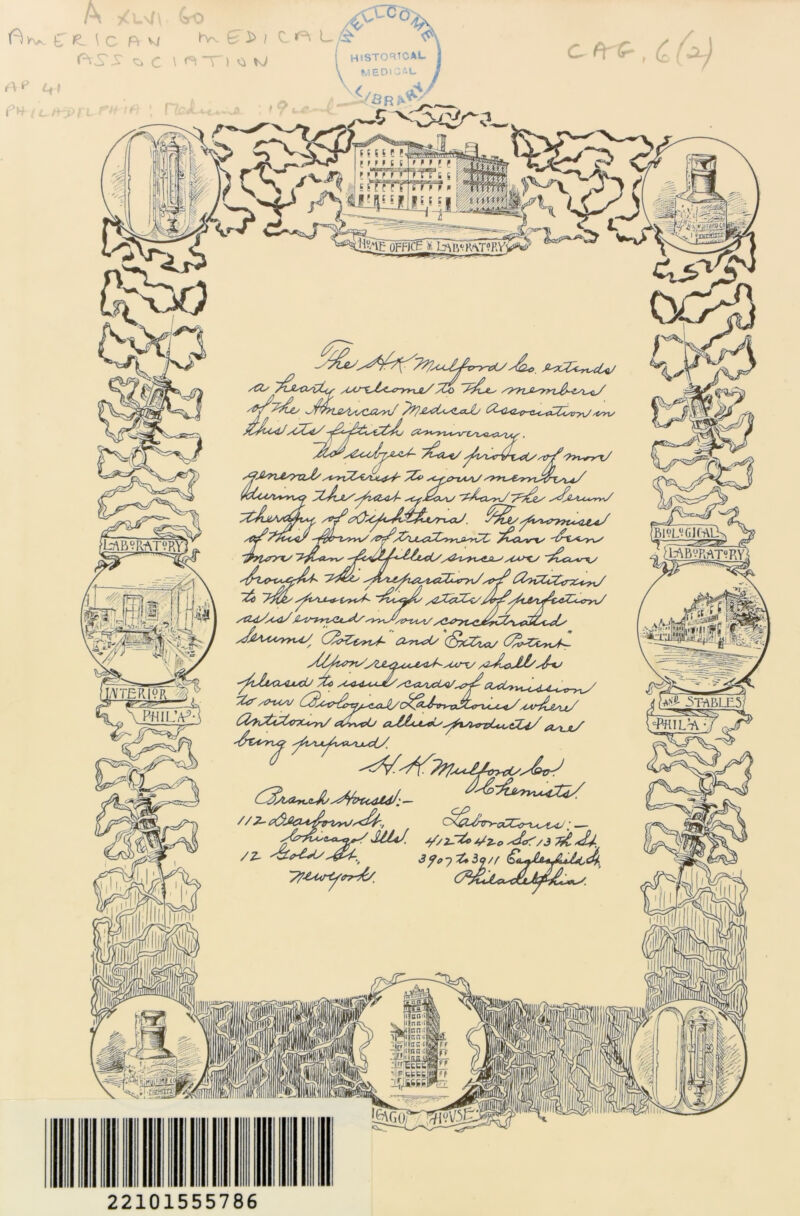 A XLVI. 60
AMERICAN MEDICAL
ASSOCIATION
AP 41
PHILADELPHIA: Medicine: 19 cent
WELLCOME
HISTORICAL
MEDICAL
LIBRARY
CAG, 6(2)
HOME OFFICE & LABORATORY
The H K Mulford Co. extends
a hearty welcome to the members
of the American Medical Association in
this its fiftieth anniversary.
No subject has proved of more
general interest to your members
during the past year than the Serum
therapy of Diphtheria. The promises
of this form of treatment have been
more than fulfilled since we have
brought the preparation of Antitoxin
to the present high state of perfection
as is evinced in our concentrated
Serums, "Potent" and "Extra Potent"
Upon request we shall be
pleased to issue cards of admission
to our Biological Laboratories where
Antitoxin and allied products are
being prepared.
H. K. Mulford Co.
Chemists.
Branch Houses:—
112 Dearborn St,
Chicago Ills.
12 Gold St,
New York.
Laboratories:—
412 to 420 So. 13 Th St,
3907 to 3911 Eaglesfield St,
Philadelphia.
LABORATORY
INTERIOR
PHIL'A.
BIOLOGICAL
LABORATORY
AND STABLES
PHIL'A.
ICAGO HOUSE
22101555786